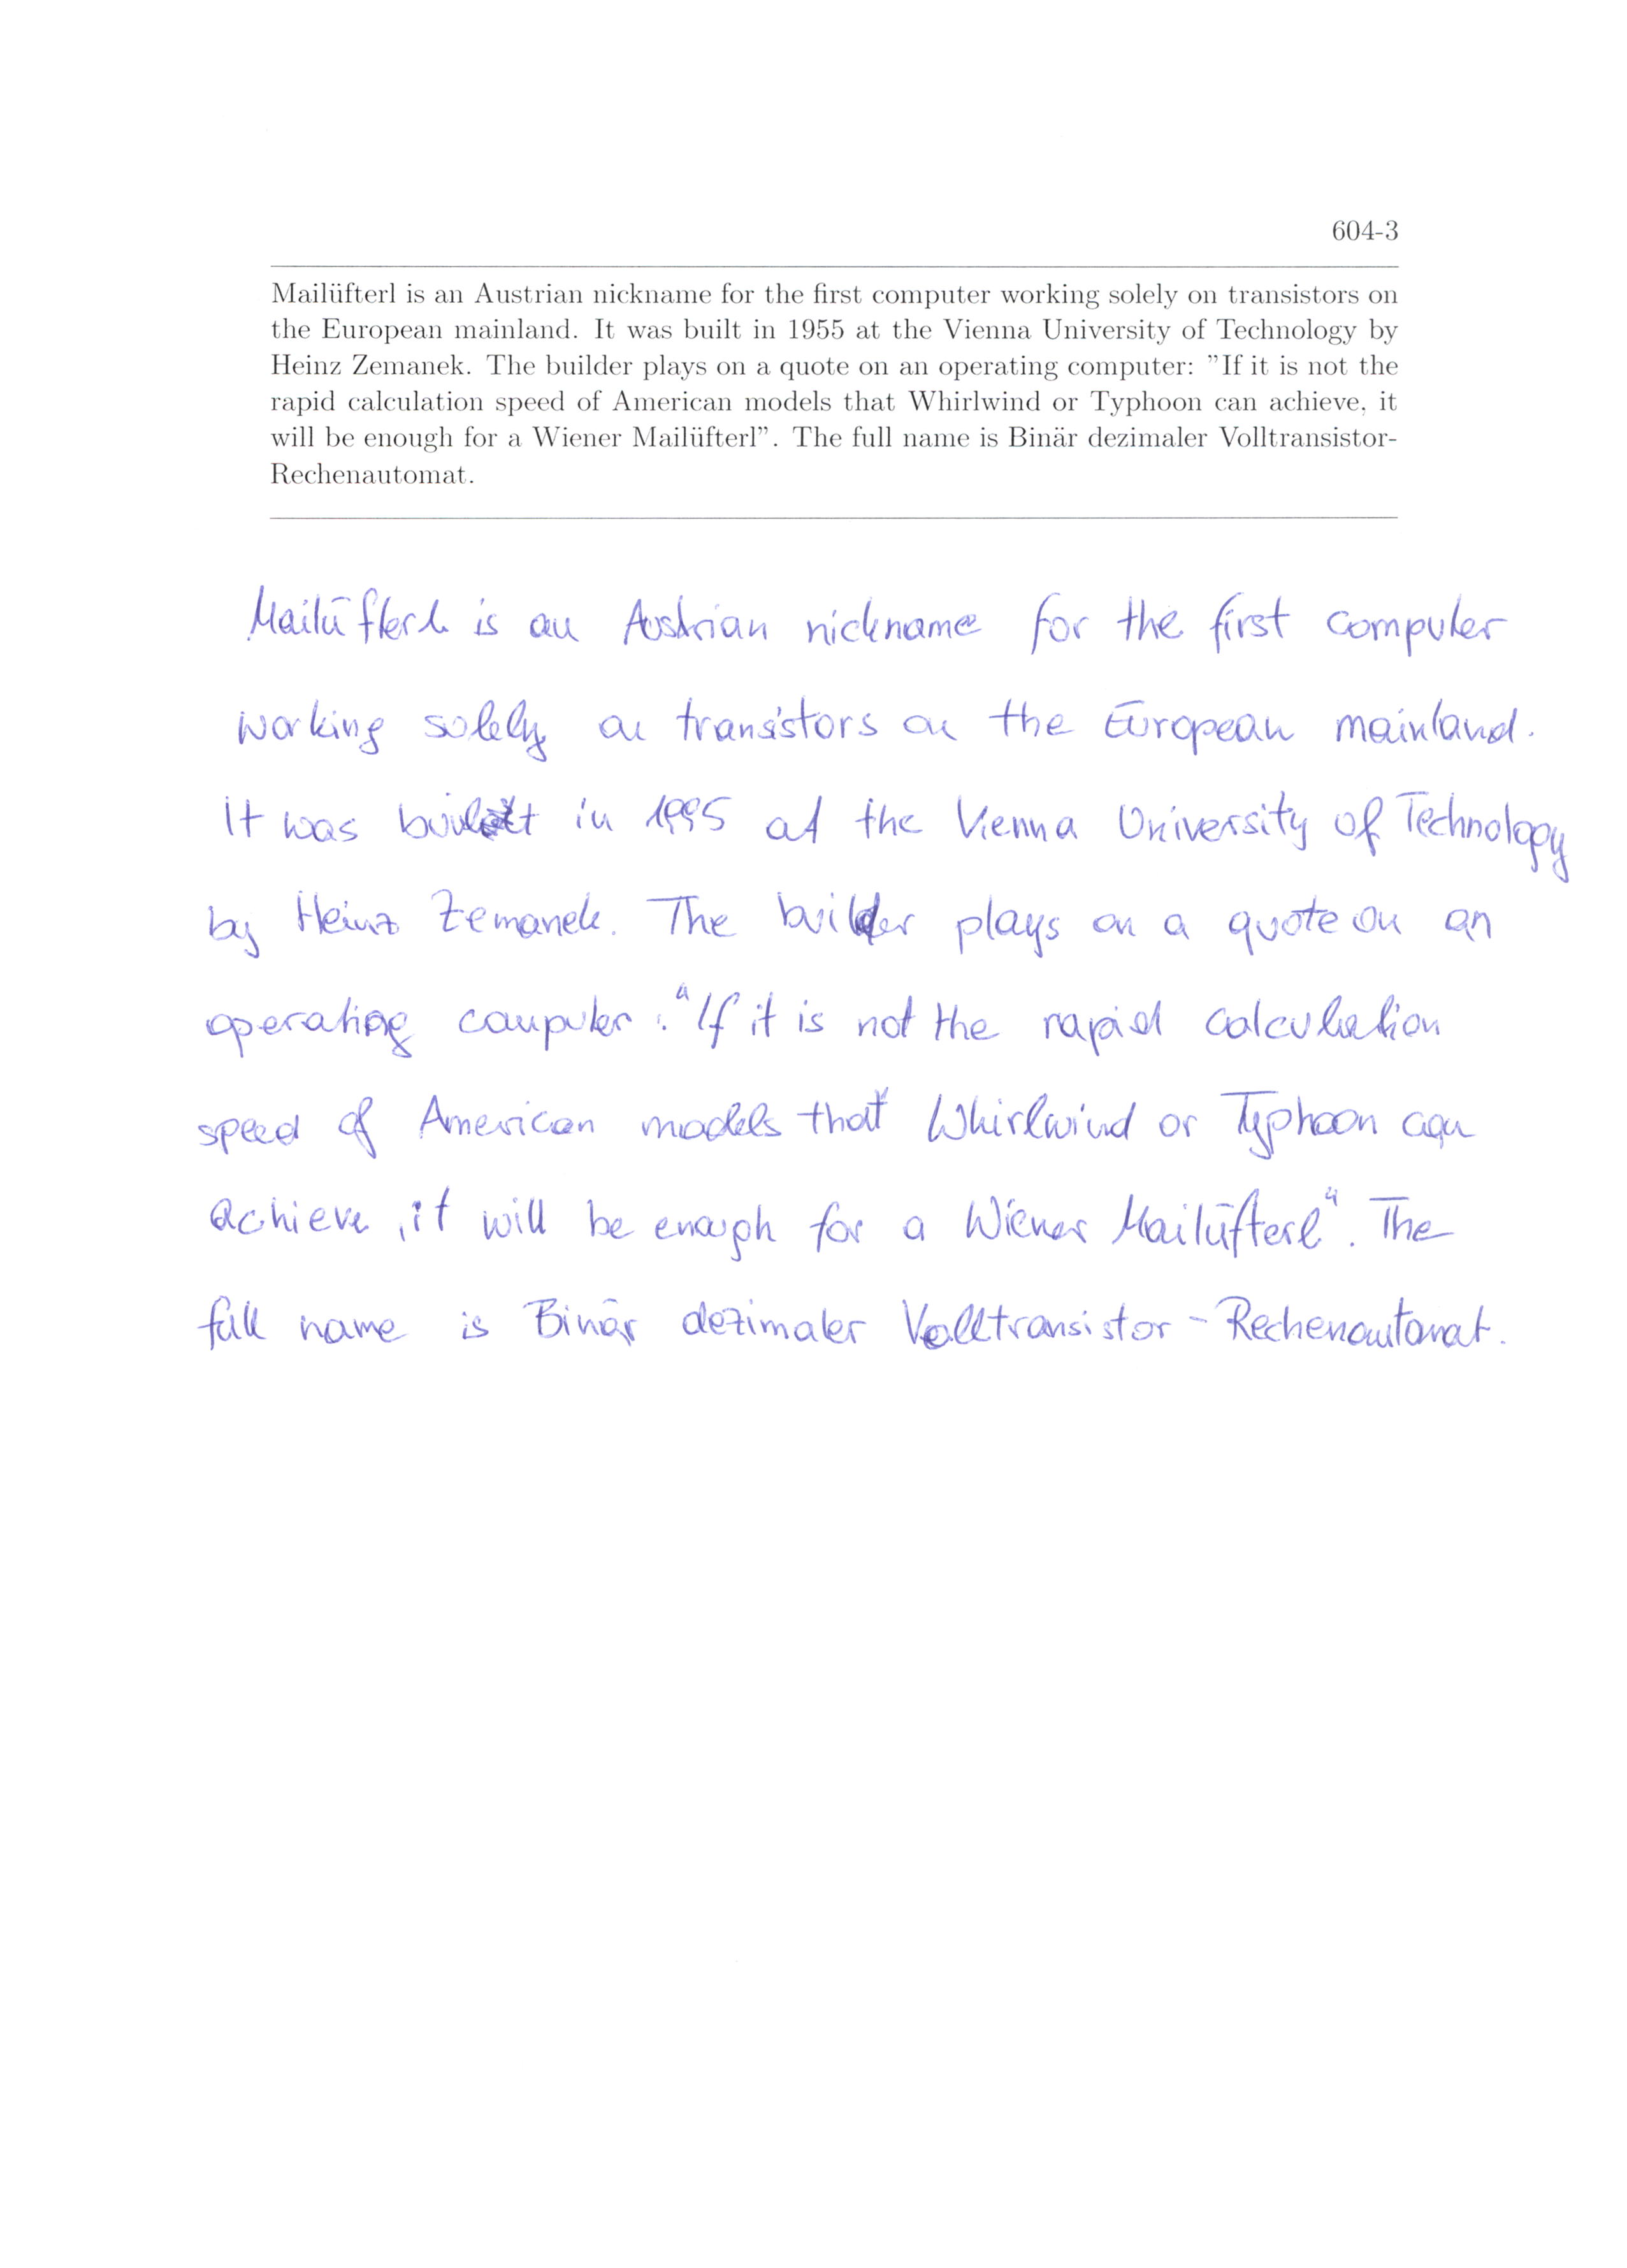 604-3
Mailüfterl is an Austrian nickname for the first computer working solely on transistors on
the European mainland. It was built in 1955 at the Vienna University of Technology by
Heinz Zemanek. The builder plays on a quote on an operating computer: "If it is not the
rapid calculation speed of American models that Whirlwind or Typhoon can achieve, it
will be enough for a Wiener Mailüfterl". The full name is Binär dezimaler Volltransistor-
Rechenautomat.
Mailüfterl is an Austrian nickname for the first computer
working solely on transistors on the European mainland.
It was built in 1995 at the Vienna University of Technology
by Heinz Zemanek. The builder plays on a quote on an
operating computer: "If it is not the rapid calculation
speed of American models that Whirlwind or Typhoon can
achieve, it will be enough for a Wiener Mailüfterl". The
full name is Binär dezimaler Volltransistor-Rechenautomat.